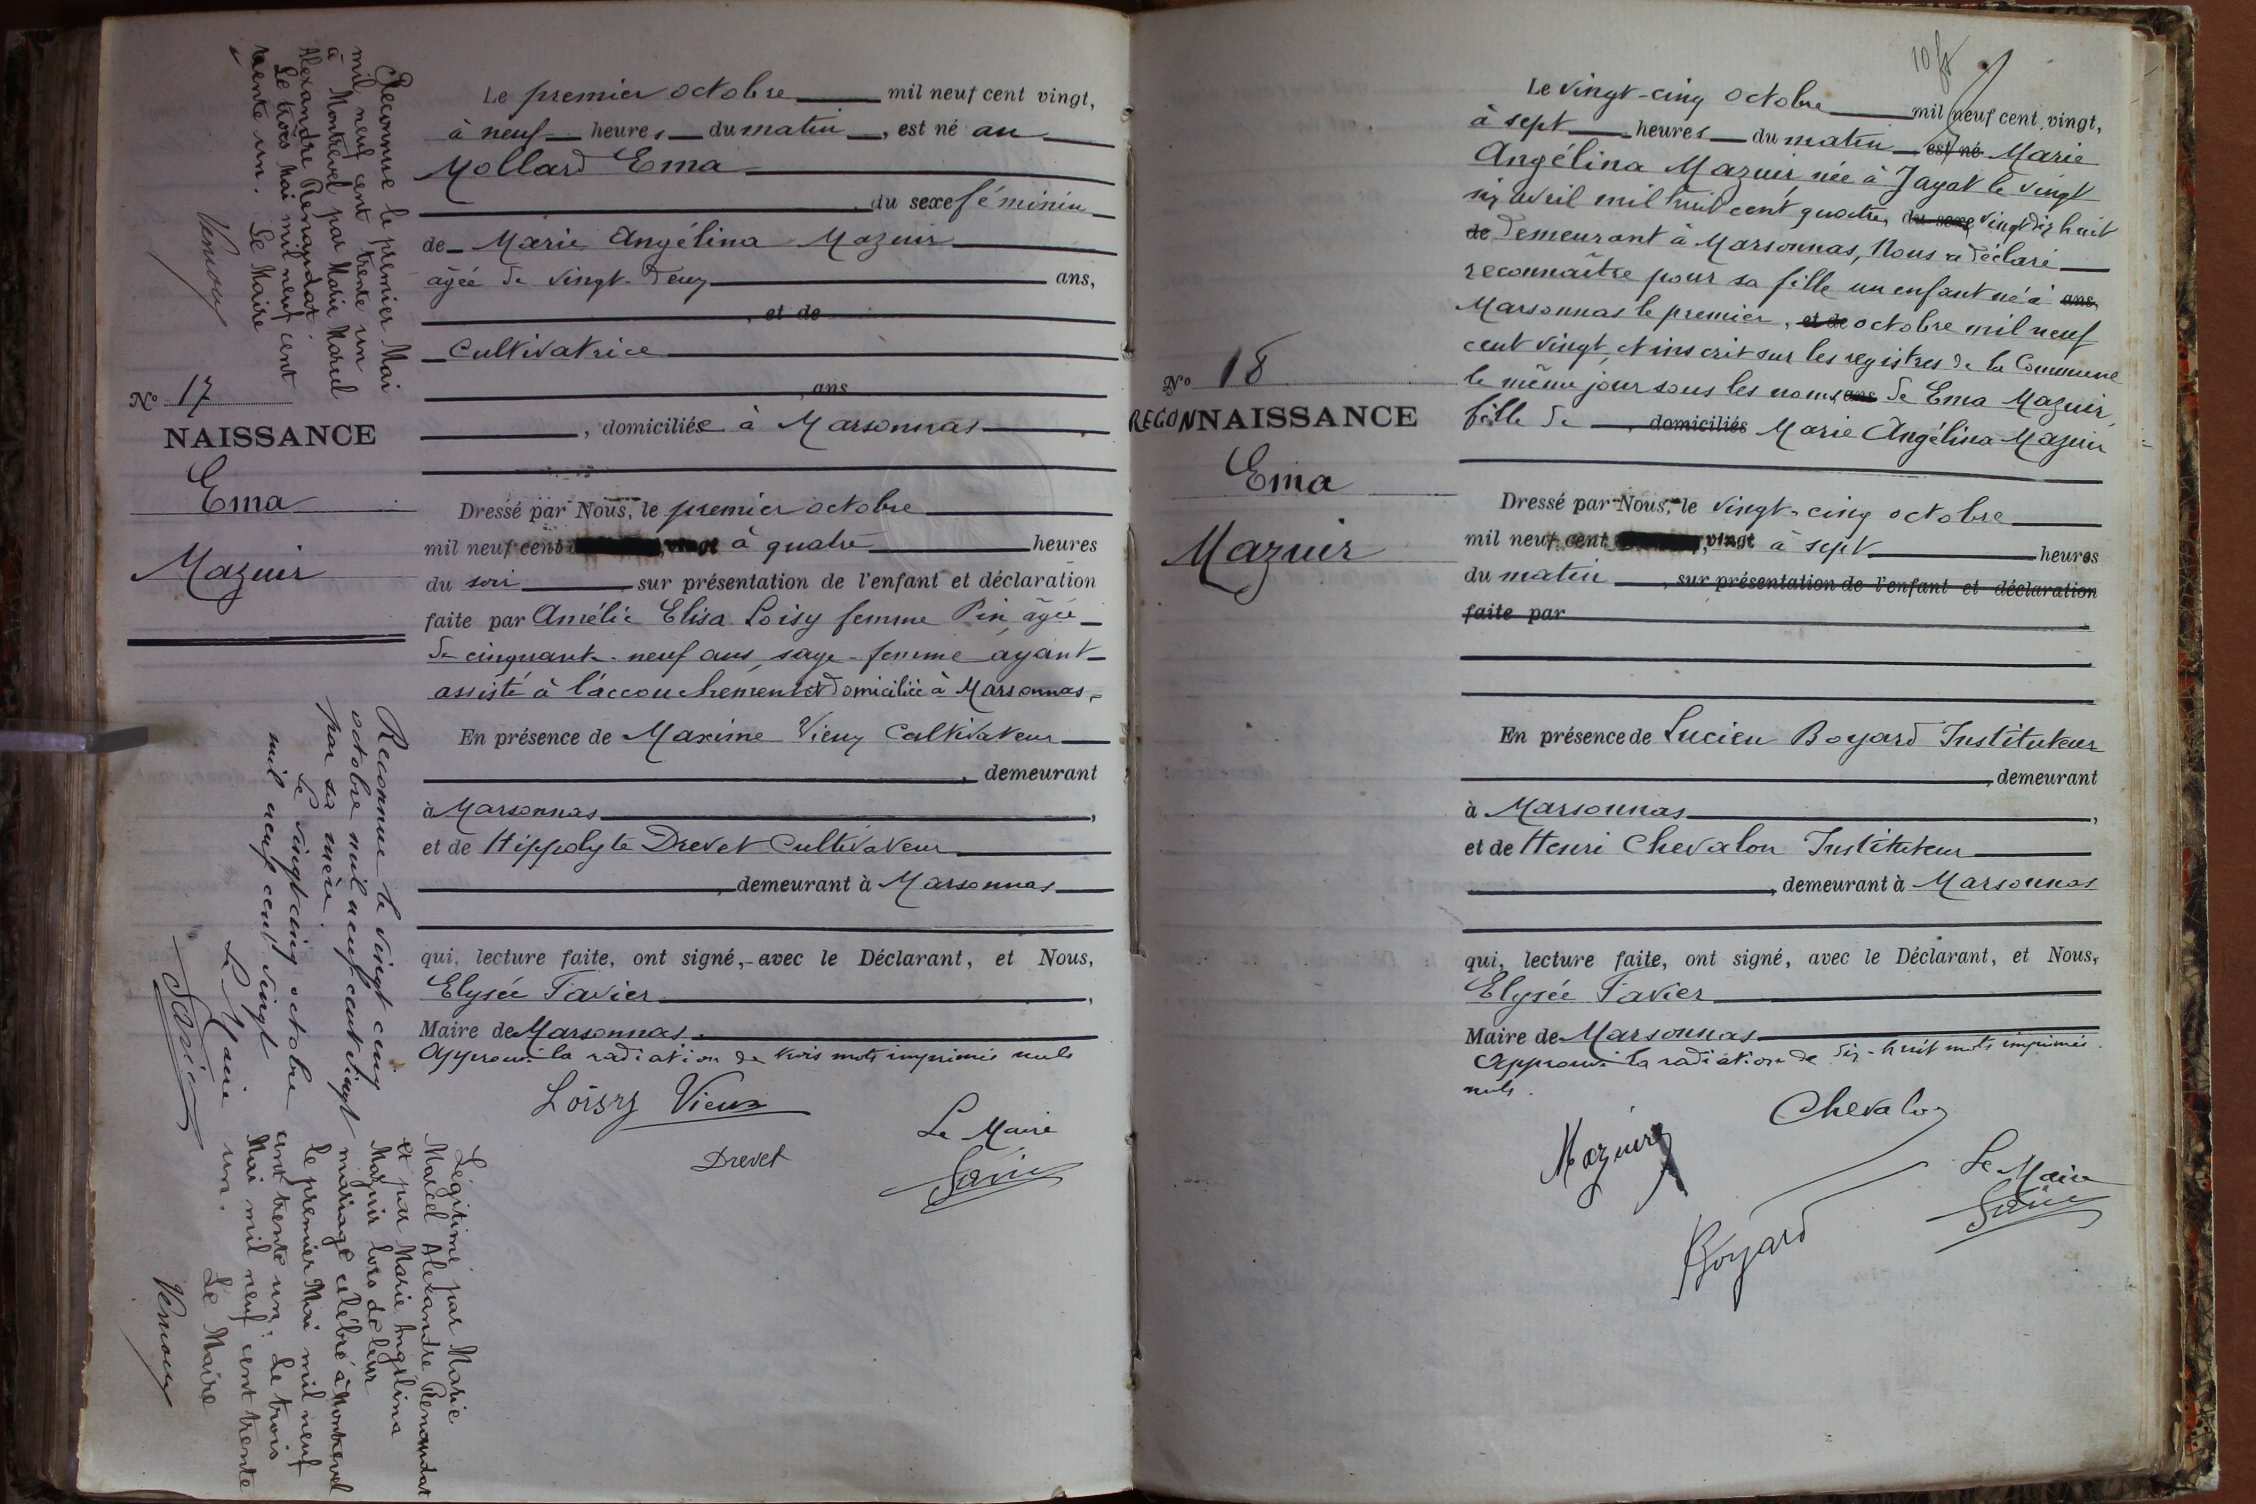 Reconnue le premier Mai
mil neuf cent trente un
à Montrevel par Marie Marcel
Alexandre Renaudat
Le trois Mai mil neuf cent
trente un. Le Maire
N° 17
NAISSANCE
Ema
Mazuir
Reconnue le vingt cinq
octobre mil neuf cent vingt
par sa mère.
Le vingt cinq octobre
mil neuf cent vingt
Le Maire
Favier
Légitimé par Marie
Marcel Alexandre Renaudat
et par Marie Angélina
Mazuir lors de leur
mariage célébré à Montrevel
le premier Mai mil neuf
cent trente un: Le trois
Mai mil neuf cent trente
un. Le Maire
Le premier octobre mil neuf cent vingt,
à neuf heures du matin, est né au
Mollard Ema
du sexe féminin
de Marie Angélina Mazuir
âgée de vingt-deux ans,
, et de
Cultivatrice
, ans
, domiciliée à Marsonnas
Dressé par Nous, le premier octobre
mil neuf cent vingt à quatre heures
du soir, sur présentation de l'enfant et déclaration
faite par Amélie Elisa Loisy femme Pin, âgée
de cinquante-neuf ans, sage-femme ayant
assisté à l'accouchement et domiciliée à Marsonnas,
En présence de Maxime Vieux Cultivateur
, demeurant
à Marsonnas,
et de Hippolyte Drevet Cultivateur
, demeurant à Marsonnas
qui, lecture faite, ont signé, avec le Déclarant, et Nous,
Elysée Favier,
Maire de Marsonnas.
Approuvé la radiation de trois mots imprimés nuls
Loisy Vieux
Le Maire
Drevet
Favier
N° 18
RECONNAISSANCE
Ema
Mazuir
Le vingt-cinq octobre mil neuf cent vingt,
à sept heures du matin est né Marie
Angélina Mazuir née à Jayat le vingt
six avril mil huit cent quatre, du sexe vingt dix huit
de demeurant à Marsonnas, Nous a déclaré
reconnaître pour sa fille un enfant né à ans,
Marsonnas le premier, et de octobre mil neuf
cent vingt, et inscrit sur les registres de la Commune
le même jour sous les noms, ans de Ema Mazuir,
fille de , domiciliés Marie Angélina Mazuir
Dressé par Nous, le vingt-cinq octobre
mil neuf cent vingt à sept heures
du matin, sur présentation de l'enfant et déclaration
faite par
En présence de Lucien Boyard Instituteur
, demeurant
à Marsonnas,
et de Henri Chevalon Instituteur
, demeurant à Marsonnas
qui, lecture faite, ont signé, avec le Déclarant, et Nous,
Elysée Favier
Maire de Marsonnas
Approuvé la radiation de dix-huit mots imprimés
nuls.
Chevalon
Mazuir
Le Maire
Favier
Boyard